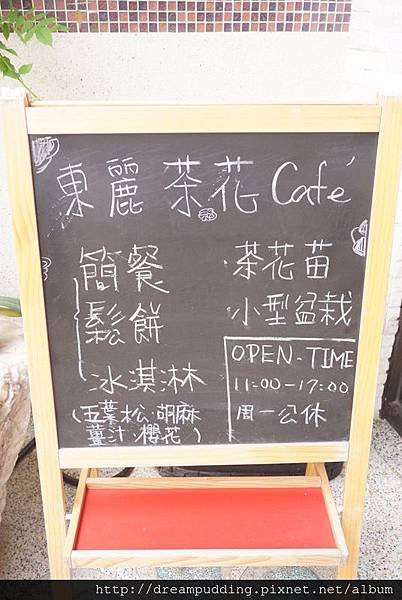 東麗茶花Café
簡餐
鬆餅
冰淇淋
(五葉松.胡麻
薑汁.櫻花)
·茶花苗
·小型盆栽
OPEN-TIME
11:00-17:00
周一公休
http://dreampudding.pixnet.net/album